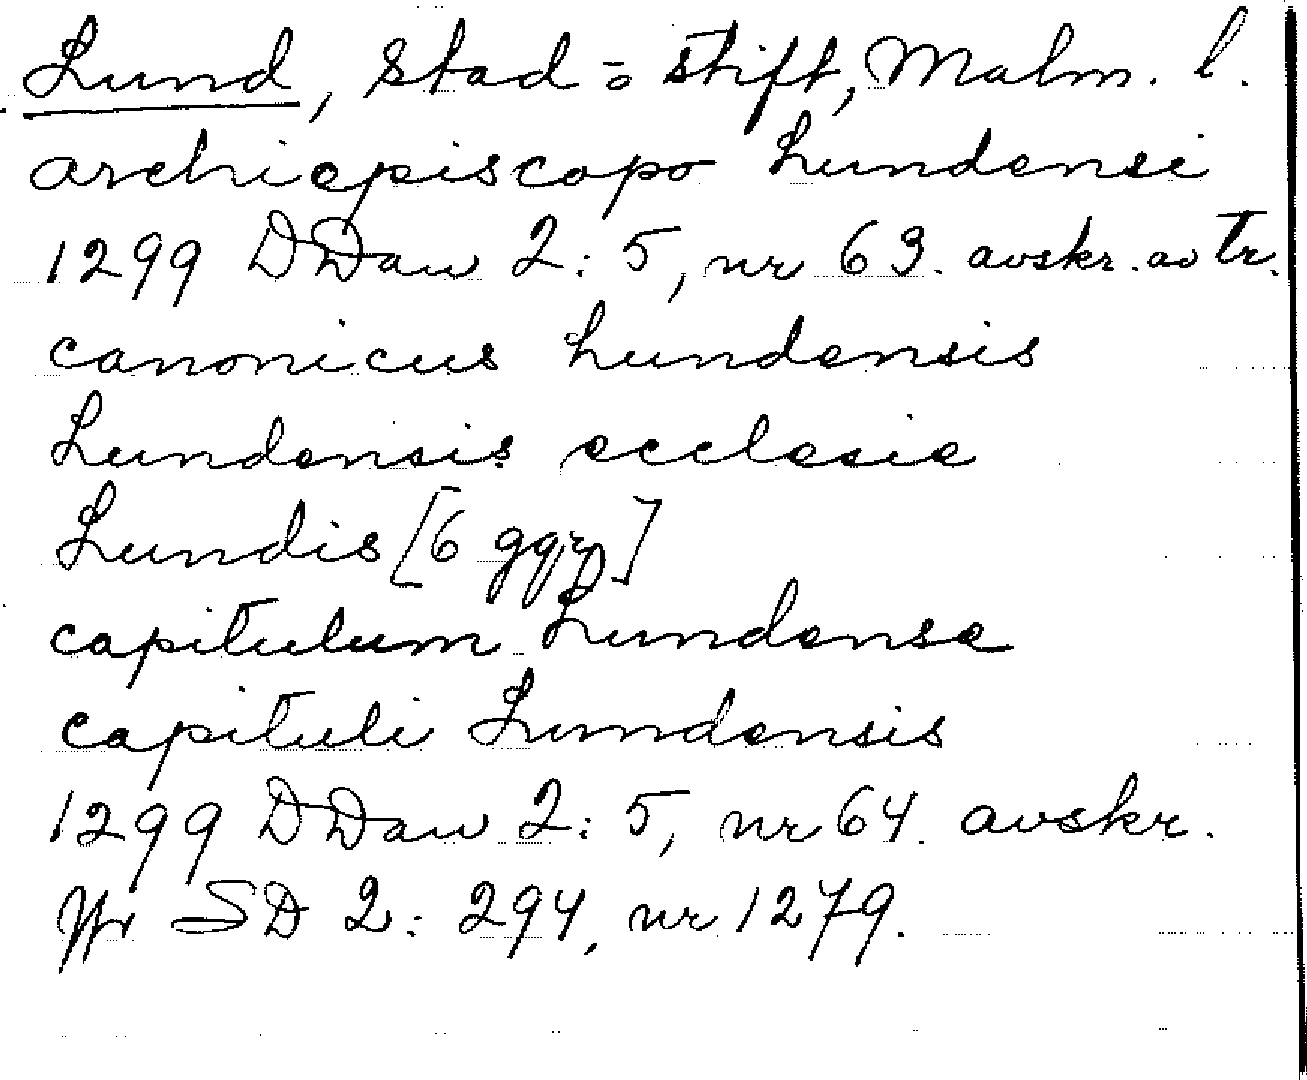 Lund, stad o stift, Malm. l.
archiepiscopo Lundensi
1299 DDan 2:5, nr 63. avskr. av tr.
canonicus Lundensis
Lundensis ecclesie
Lundis [6 ggr]
capitulum Lundense
capituli Lundensis
1299 DDan 2:5, nr 64. avskr.
Jfr SD 2: 294, nr 1279.